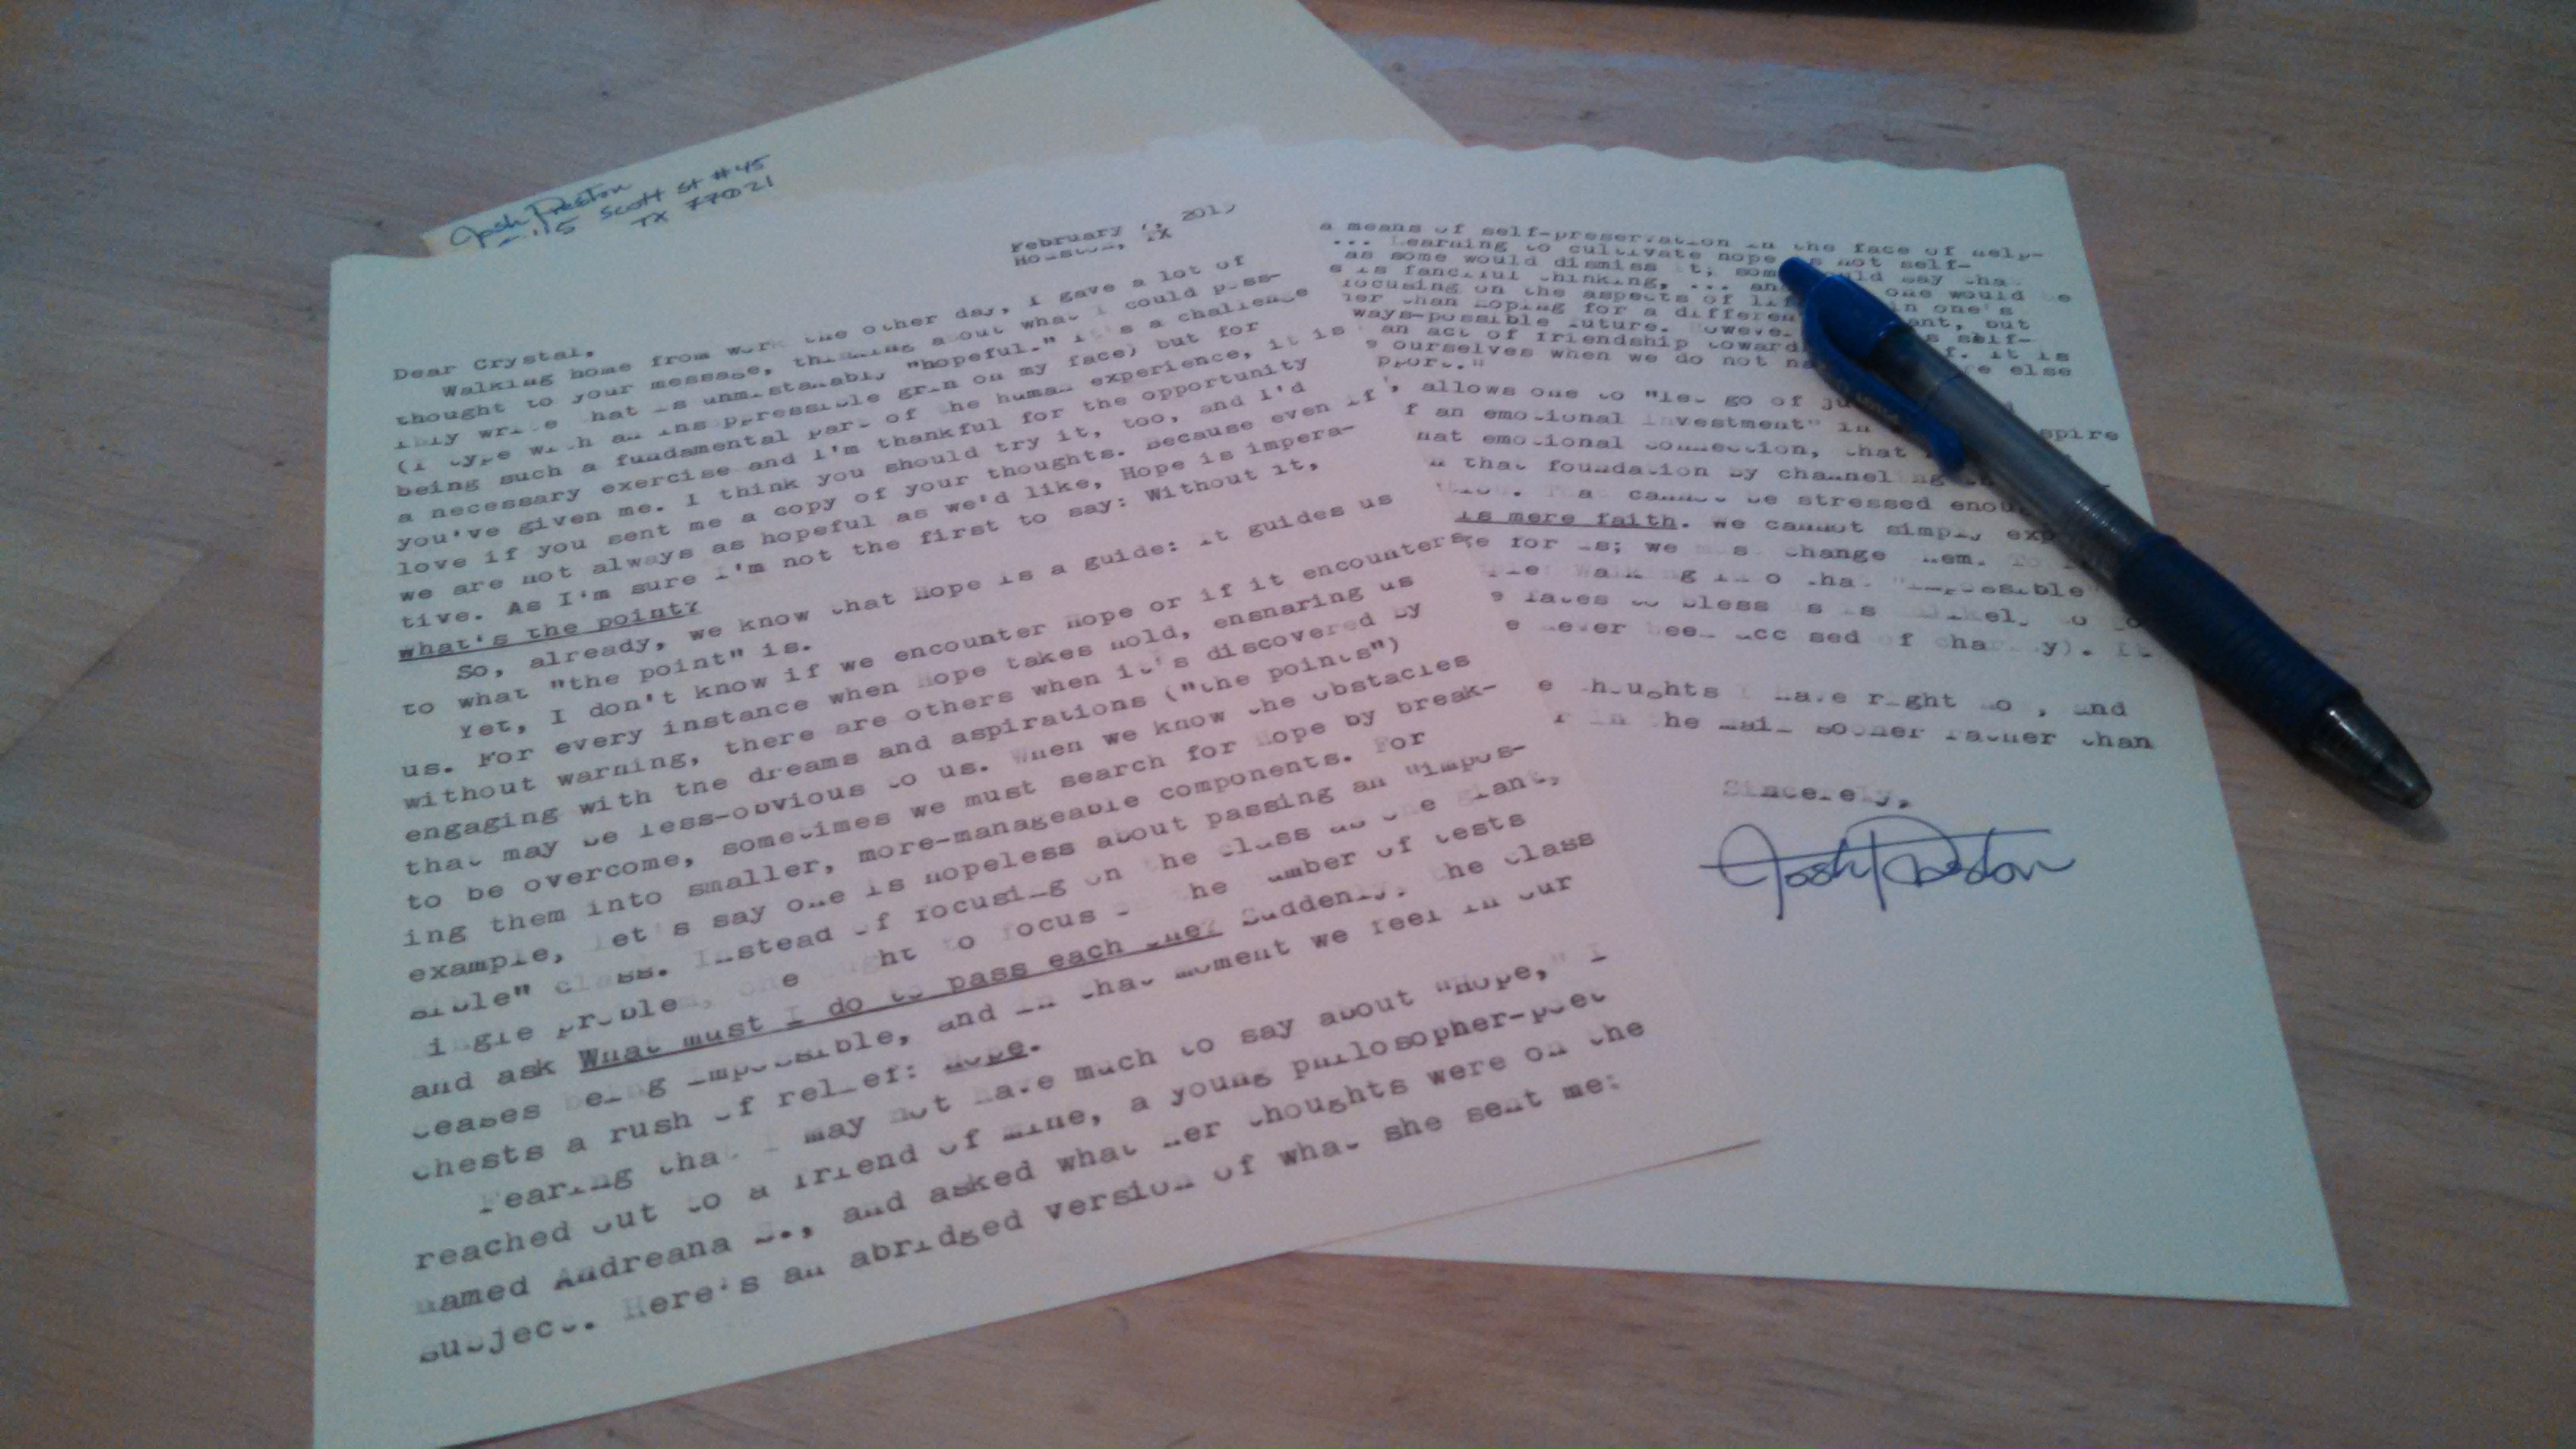 Josh Preston
Scott St #45
TX 77021
February
Houston, TX
Dear Crystal,
Walking home from work the other day, I gave a lot of
thought to your message, thinking about what I could poss-
ibly write that is unmistakably "hopeful." It's a challenge
(I type with an inspppressible grin on my face) but for
being such a fundamental part of the human experience, it is
a necessary exercise and I'm thankful for the opportunity
you've given me. I think you should try it, too, and I'd
love if you sent me a copy of your thoughts. Because even if
we are not always as hopeful as we'd like, Hope is impera-
tive. As I'm sure I'm not the first to say: Without it,
what's the point?
So, already, we know that Hope is a guide: it guides us
to what "the point" is.
Yet, I don't know if we encounter Hope or if it encounters
us. For every instance when Hope takes hold, ensnaring us
without warning, there are others when it's discovered by
engaging with the dreams and aspirations ("the points")
that may be less-obvious to us. When we know the obstacles
to be overcome, sometimes we must search for Hope by break-
ing them into smaller, more-manageable components. For
example, let's say one is hopeless about passing an "impos-
sible" class. Instead of focusing on the class as one giant,
single problem, one ought to focus on the number of tests
and ask What must I do to pass each one? Suddenly, the class
ceases being impossible, and in that moment we feel in our
chests a rush of relief: Hope.
Fearing that I may not have much to say about "Hope," I
reached out to a friend of mine, a young philosopher-poet
named Andreana S., and asked what her thoughts were on the
subject. Here's an abridged version of what she sent me:
a means of self-preservation in the face of help-
... Learning to cultivate hope is not self-
as some would dismiss it; some would say that
is fanciful thinking, ... and one would be
focusing on the aspects of life in one's
than hoping for a different but
ways-possible future. However, self-
an act of friendship toward it is
ourselves when we do not else
allows one to "let go of
an emotional investment" in
that emotional connection, that
that foundation by channeling
cannot be stressed
is mere faith. We cannot simply
for us; we must change them.
walking into that "impossible"
fates to bless us is unlikely to
never been accused of charity).
thoughts I have right now, and
in the mail sooner rather than
Sincerely,
Josh Preston